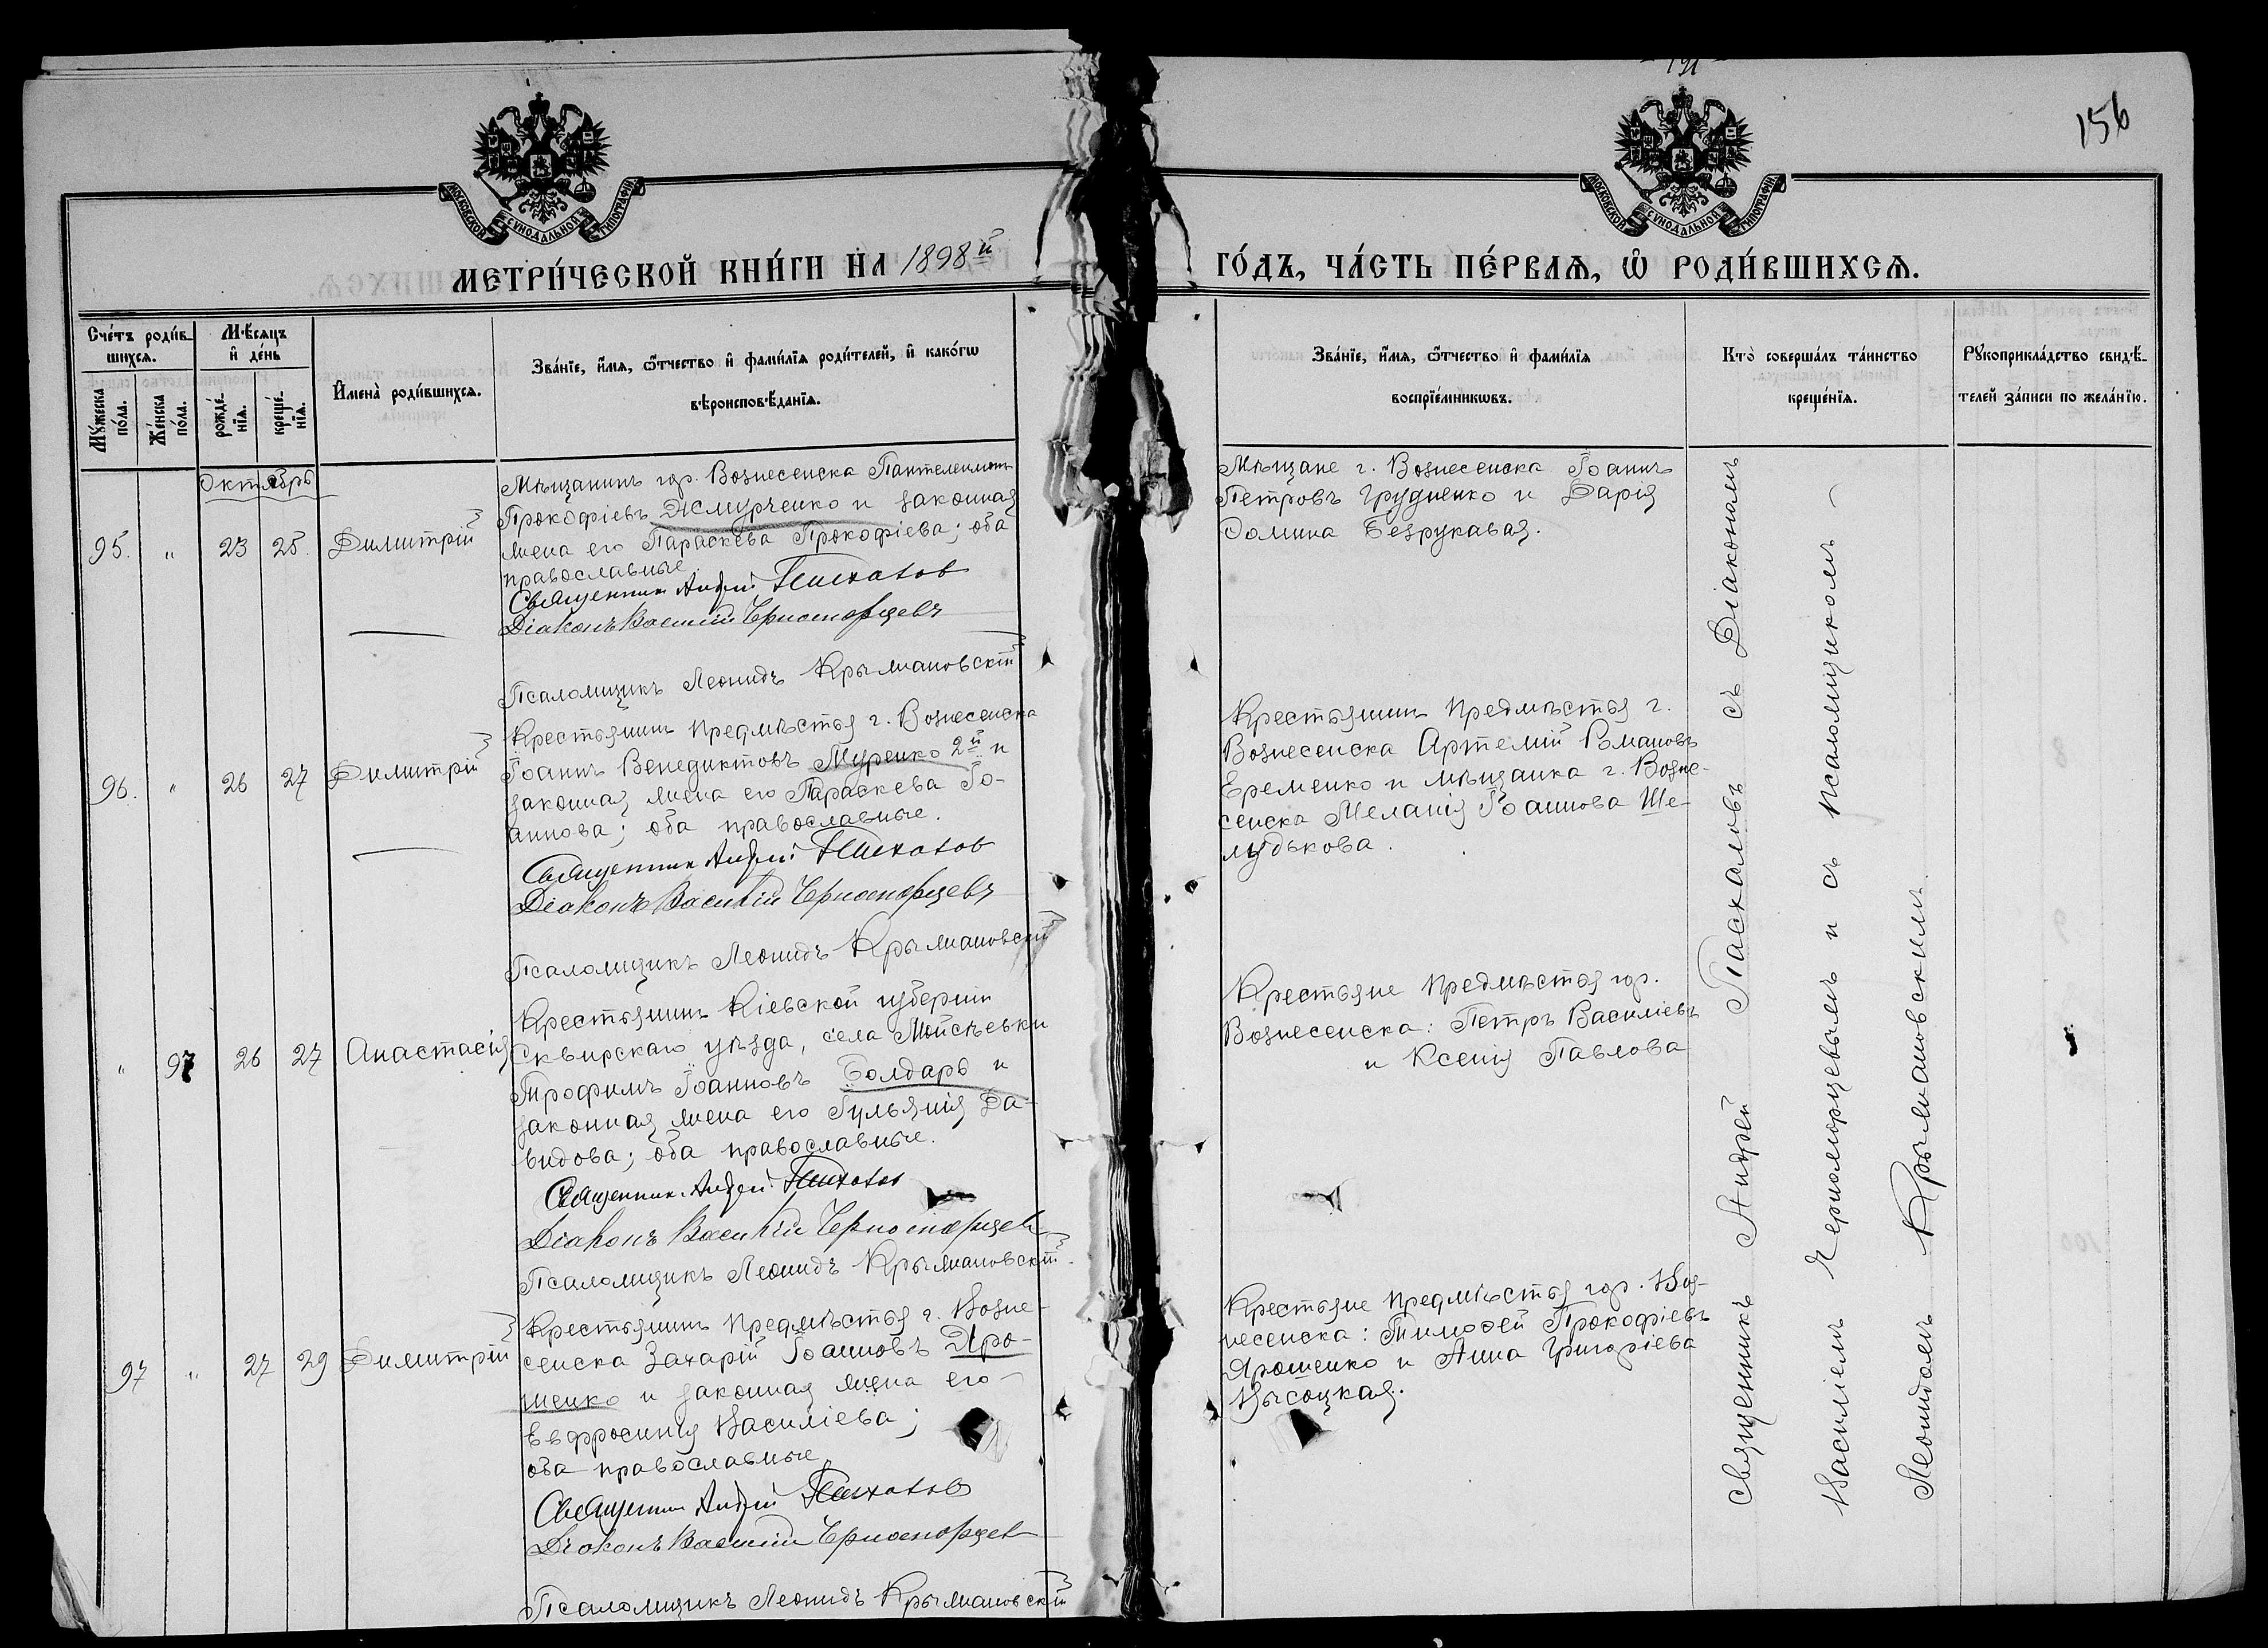 156
МОСКОВСКОЙ СѴНОДАЛЬНОЙ ТИПОГРАФІИ
МОСКОВСКОЙ СѴНОДАЛЬНОЙ ТИПОГРАФІИ
МЕТРИ́ЧЕСКОЙ КНИ́ГИ НА 1898й
ГО́ДЪ, ЧА́СТЬ ПЕ́РВАѦ, Ѽ РОДИ́ВШИХСѦ.
Сче́тъ роди́в-
шихсѧ.
Мѹ́жеска по́ла.
Же́нска по́ла.
М-ѣсѧцъ
и де́нь
рожде́-нїѧ.
креще́-нїѧ.
Имена̀ роди́вшихсѧ.
Зва́нїе, и́мѧ, ѻ́тчество и фами́лїѧ роди́телей, и како́гѡ
в-ѣроиспов-ѣданїѧ.
Зва́нїе, и́мѧ, ѻ́тчество и фами́лїѧ
воспрїе́мникѡвъ.
Кто̀ соверша́лъ та́инство
креще́нїѧ.
Рѹкоприкла́дство свид-ѣ-
телей за́писи по жела́нїю.
Октябрь
95. " 23 25. Димитрій
Мѣщанинъ гор. Вознесенска Пантелеимонъ
Прокофіевъ Жмурченко и законная
жена его Параскева Прокофіева; оба
православные
Священник Андрей Пасхалов
Діаконъ Василій Черноморцевъ
Псаломщикъ Леонидъ Крыжановскій
Мѣщане г. Вознесенска Іоаннъ
Петровъ Грудненко и Дарія
Домина Безрукавая.
96. " 26 27 Димитрій
Крестьянинъ предмѣстья г. Вознесенска
Іоаннъ Венедиктовъ Муренко 2й и
законная жена его Параскева Іо-
аннова; оба православные.
Священник Андрей Пасхалов
Діаконъ Василій Черноморцевъ
Псаломщикъ Леонидъ Крыжановскій
Крестьянинъ предмѣстья г.
Вознесенска Артемій Романовъ
Еременко и мѣщанка г. Возне-
сенска Меланія Іоаннова Ше-
лудькова.
" 97 26 27 Анастасія
Крестьянинъ Кіевской губерніи
Сквирскаго уѣзда, села Мойсѣевки
Трофимъ Іоанновъ Болдарь и
законная жена его Іульянія Да-
видова; оба православные.
Священник Андрей Пасхалов
Діаконъ Василій Черноморцев
Псаломщикъ Леонидъ Крыжановскій.
Крестьяне предмѣстья гор.
Вознесенска: Петръ Василіевъ
и Ксенія Павлова
97 " 27 29 Димитрій
Крестьянинъ предмѣстья г. Возне-
сенска Захарій Іоанновъ Яро-
шенко и законная жена его
Евфросинія Василіева;
оба православные
Священник Андрей Пасхалов
Діаконъ Василій Черноморцев
Псаломщикъ Леонидъ Крыжановскій
Крестьяне предмѣстья гор. Воз-
несенска: Тимоѳей Прокофіевъ
Ярошенко и Анна Григоріева
Высоцкая.
Священникъ Андрей Пасхаловъ съ Діакономъ
Василіемъ Черноморцевымъ и съ псаломщикомъ
Леонидомъ Крыжановскимъ.